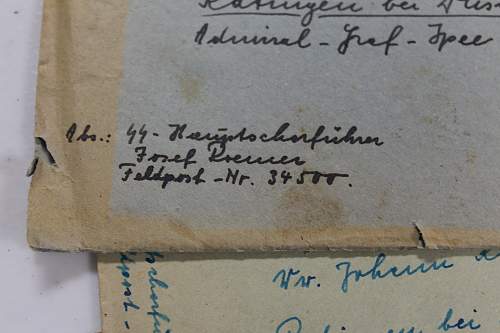 Ratingen bei Düss
Admiral-Graf-Spee
Abs.: SS-Hauptscharführer
Josef Roemer
Feldpost-Nr. 34500.
Johann
bei